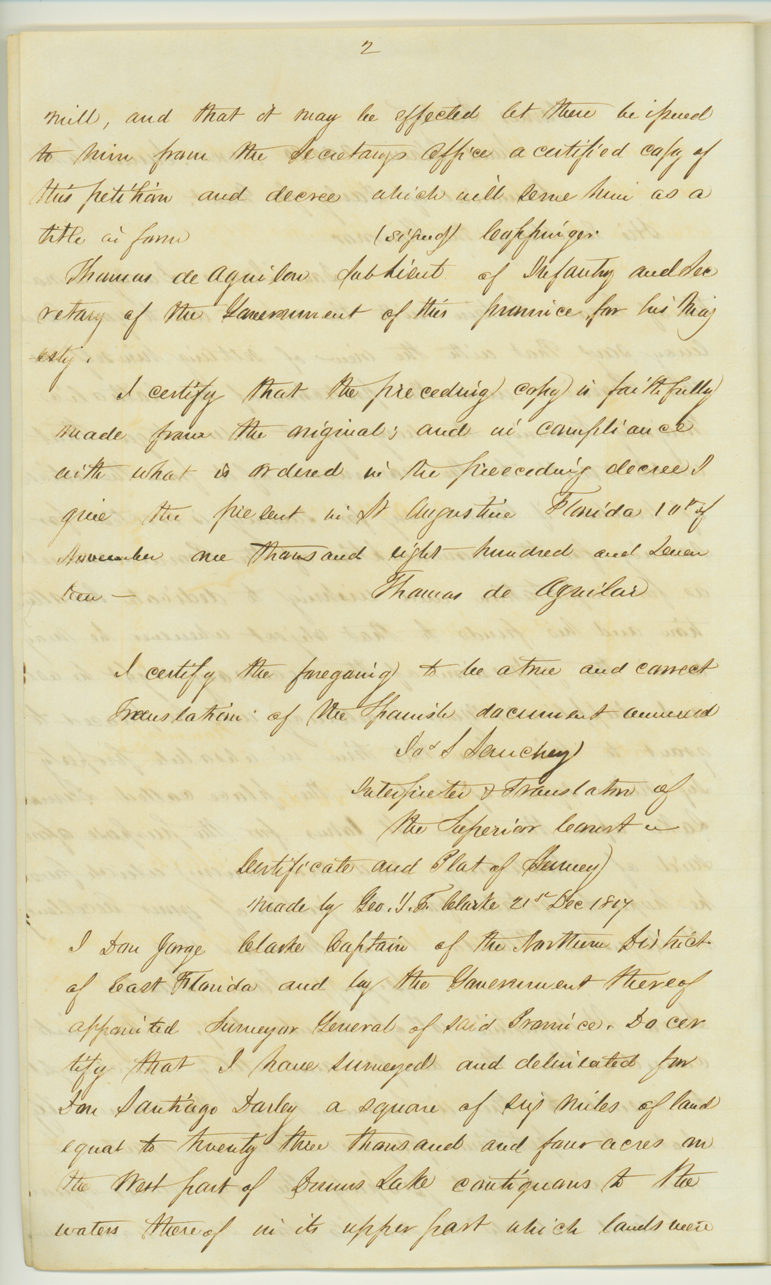 2
mill, and that it may be effected let there be issued
to him from the Secretarys Office a certified copy of
this petition and decree which will serve him as a
title in form (signed) Coppinger.
Thomas de Aguilar Sub Lieut of Infantry and Sec
retary of the Government of this province for his Maj
esty.
I certify that the preceding copy is faithfully
made from the original; and in compliance
with what is ordered in the preceeding decree I
give the present in St Augustine Florida 10th of
November one thousand eight hundred and Seven
teen — Thomas de Aguilar
I certify the foregoing to be a true and correct
Translation of the Spanish document annexed
Jos S Sanchez
Interpreter & Translator of
the Superior Court
Certificate and Plat of Survey
made by Geo. J. F. Clarke 21st Dec 1817
I Don Jorge Clarke Captain of the Northern District
of East Florida and by the Government thereof
appointed Surveyor General of said Province. Do cer
tify that I have surveyed and delineated for
Don Santiago Darley a square of six miles of land
equal to twenty three thousand and four acres on
the West part of Dunns Lake contiguous to the
waters thereof in its upper part which lands were